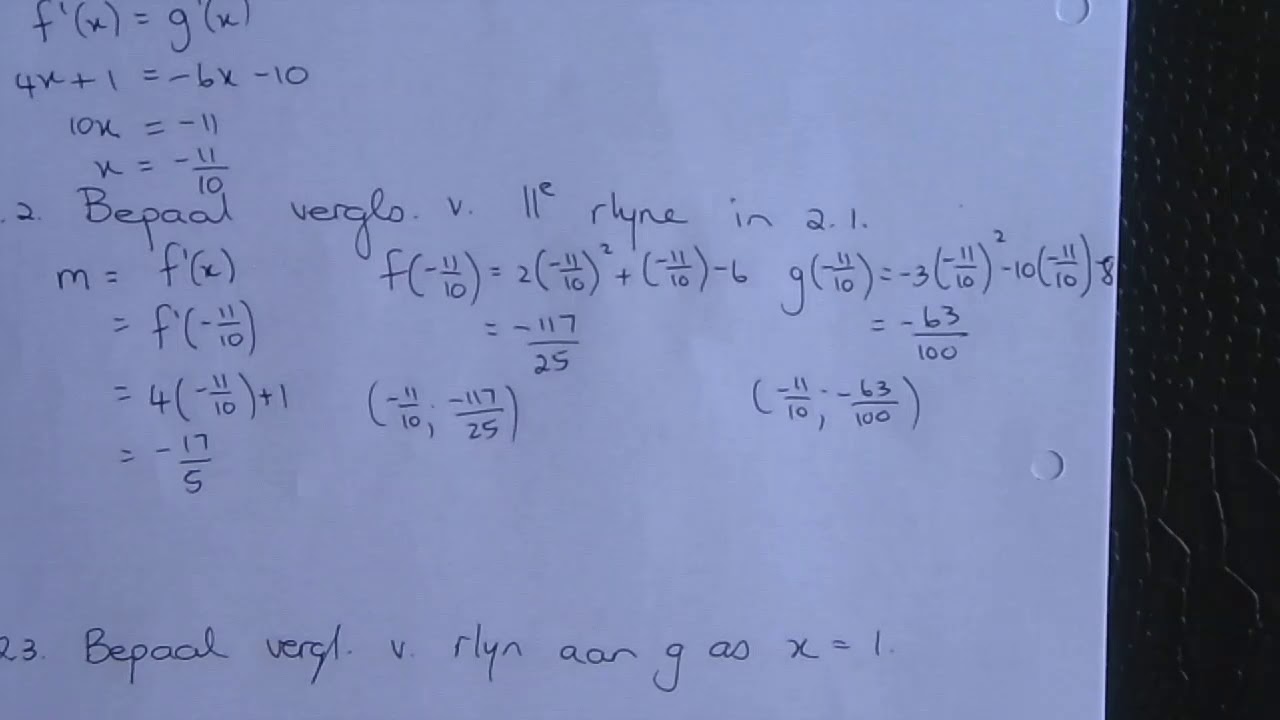 f'(x) = g'(x)
4x + 1 = -6x - 10
10x = -11
x = -11/10
.2. Bepaal verglo. v. ||e rlyne in 2.1.
m = f'(x) f(-11/10) = 2(-11/10)² + (-11/10) - 6 g(-11/10) = -3(-11/10)² - 10(-11/10) - 8
= f'(-11/10) = -117/25 = -63/100
= 4(-11/10) + 1 (-11/10 ; -117/25) (-11/10 ; -63/100)
= -17/5
23. Bepaal vergl. v. rlyn aan g as x = 1.